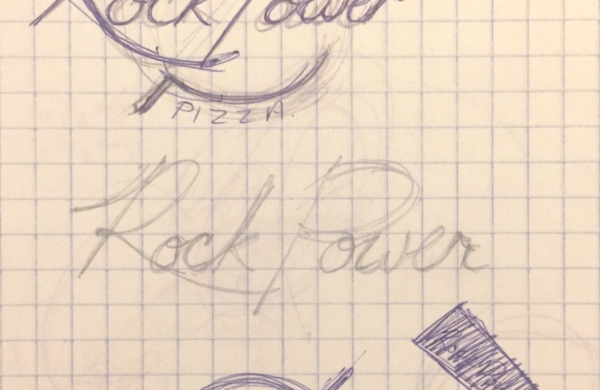 Rock Power
PIZZA.
Rock Power